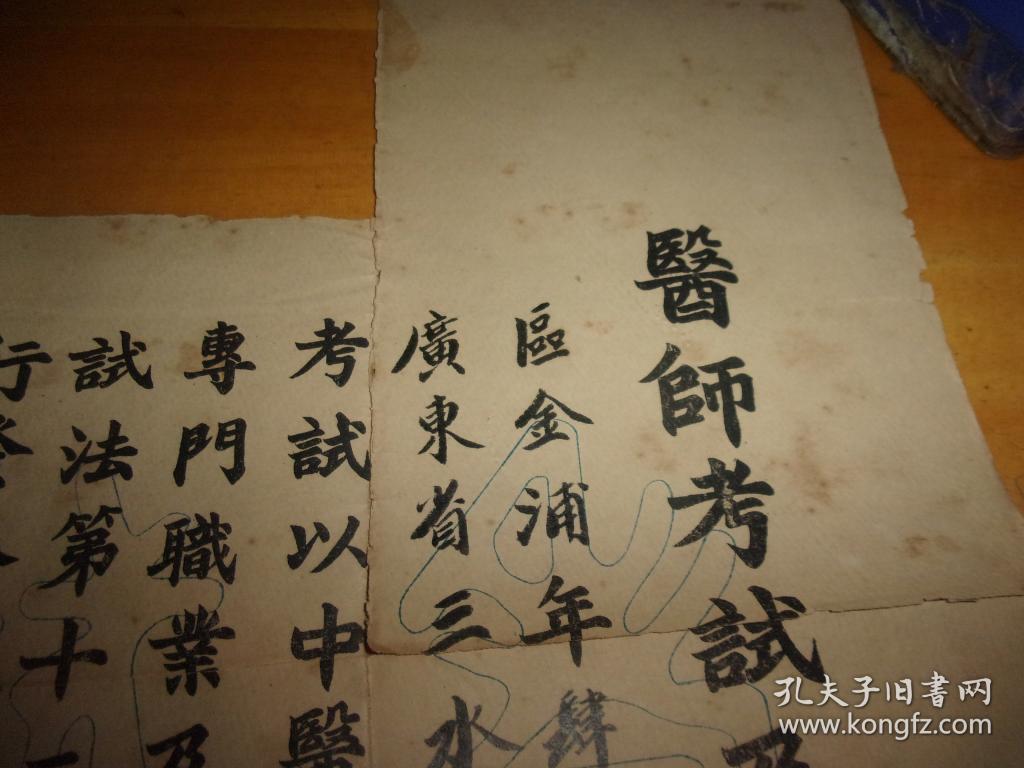 醫師考試及
區金浦年肆
廣東省三水
考試以中醫
專門職業及
試法第十二
行
孔夫子旧书网
www.kongfz.com